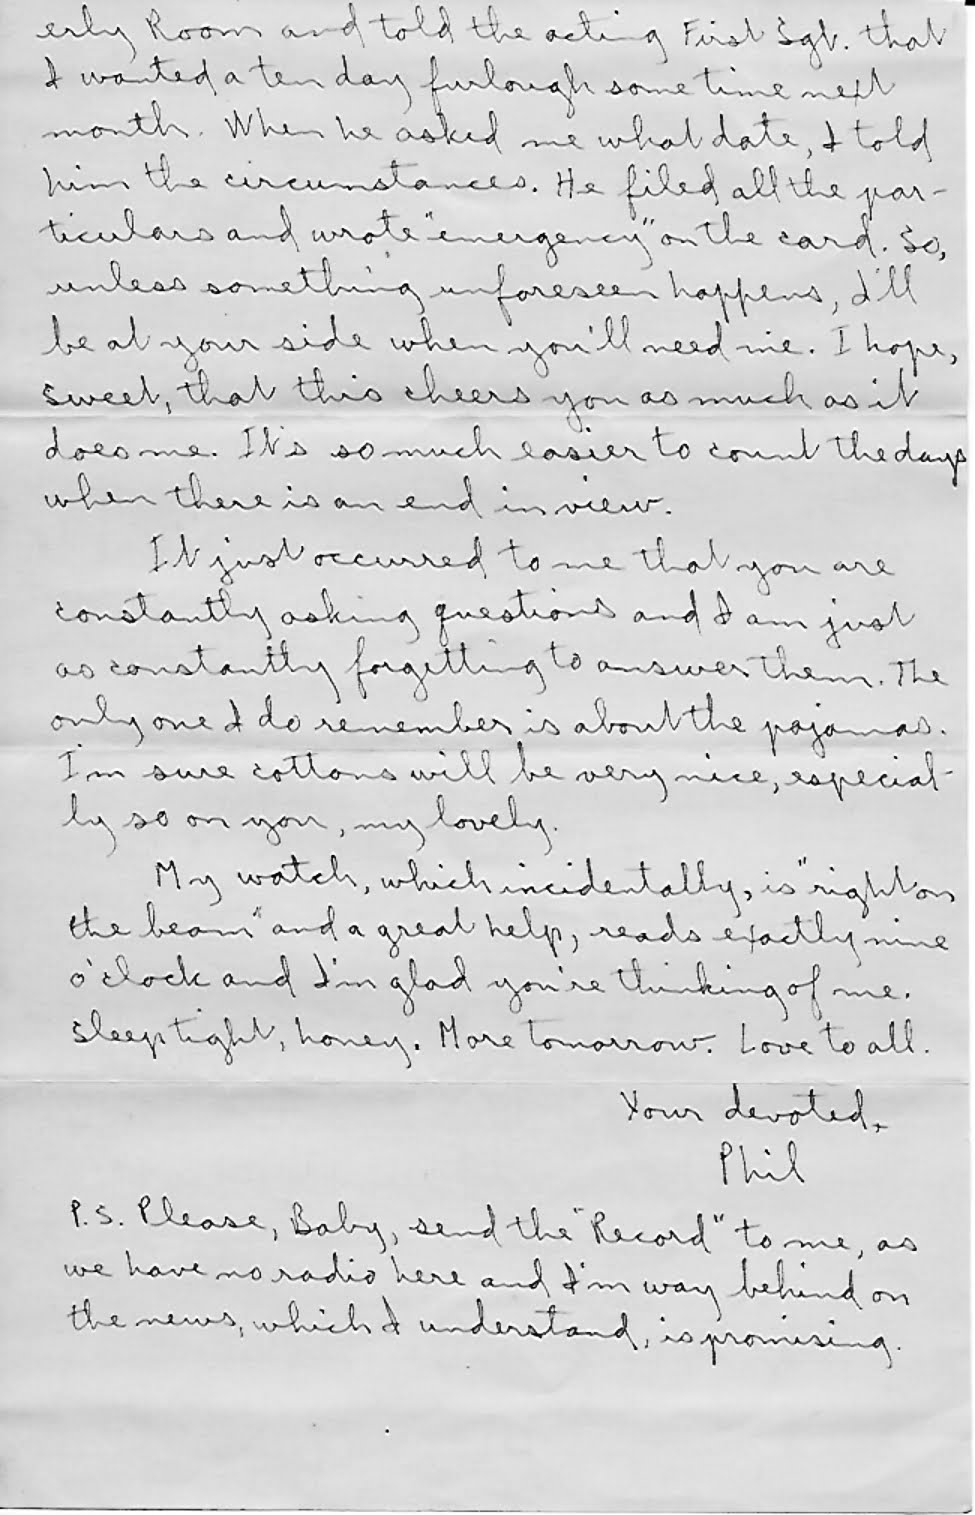 erly Room and told the acting First Sgt. that
I wanted a ten day furlough some time next
month. When he asked me what date, I told
him the circumstances. He filed all the par-
ticulars and wrote "emergency" on the card. So,
unless something unforeseen happens, I'll
be at your side when you'll need me. I hope,
Sweet, that this cheers you as much as it
does me. It's so much easier to count the days
when there is an end in view.
It just occurred to me that you are
constantly asking questions and I am just
as constantly forgetting to answer them. The
only one I do remember is about the pajamas.
I'm sure cottons will be very nice, especial-
ly so on you, my lovely.
My watch, which incidentally, is "right on
the beam" and a great help, reads exactly nine
o'clock and I'm glad you're thinking of me.
Sleep tight, honey. More tomorrow. Love to all.
Your devoted,
Phil
P.S. Please, Baby, send the "Record" to me, as
we have no radio here and I'm way behind on
the news, which I understand, is promising.